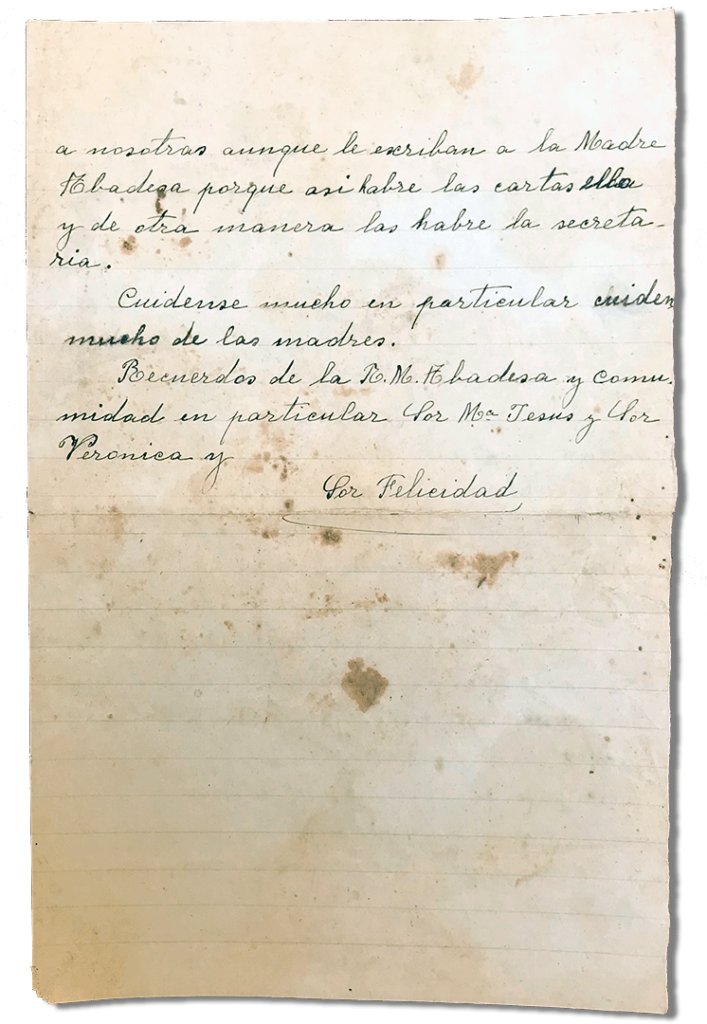 a nosotras aunque le escriban a la Madre
Abadesa porque asi habre las cartas ella
y de otra manera las habre la secreta-
ria.
Cuidense mucho en particular cuiden
mucho de las madres.
Recuerdos de la R. M. Abadesa y comu-
nidad en particular Sor Mª Jesus y Sor
Veronica y
Sor Felicidad